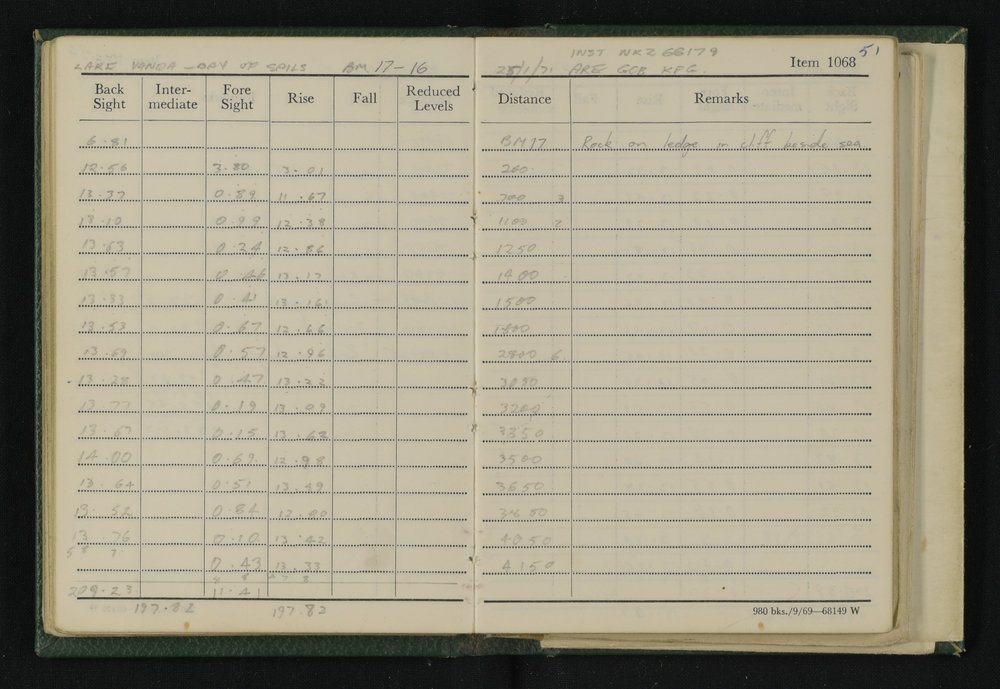 LAKE VANDA - BAY OF SAILS BM 17-16
INST NK2 68179 51
25/1/71 ARE GCB KFG. Item 1068
Back Sight Inter-mediate Fore Sight Rise Fall Reduced Levels Distance Remarks
6.81 BM17 Rock on ledge in cliff beside sea
12.56 3.80 3.01 200
13.27 0.89 11.67 700 3
13.10 0.99 12.38 1100 2
13.63 0.24 12.86 1250
13.57 0.46 13.17 1400
13.33 0.41 13.16 1500
13.53 0.67 12.66
13.69 0.57 12.96 2800 6
13.28 0.47 13.22 3080
13.77 0.19 13.09 3200
13.67 0.15 13.62 3350
14.00 0.69 12.98 3500
13.64 0.51 13.49 3650
13.52 0.84 12.80
13.76 0.10 13.42 4050
0.43 13.33 4150
209.23 11.41
197.82 197.82
980 bks./9/69—68149 W